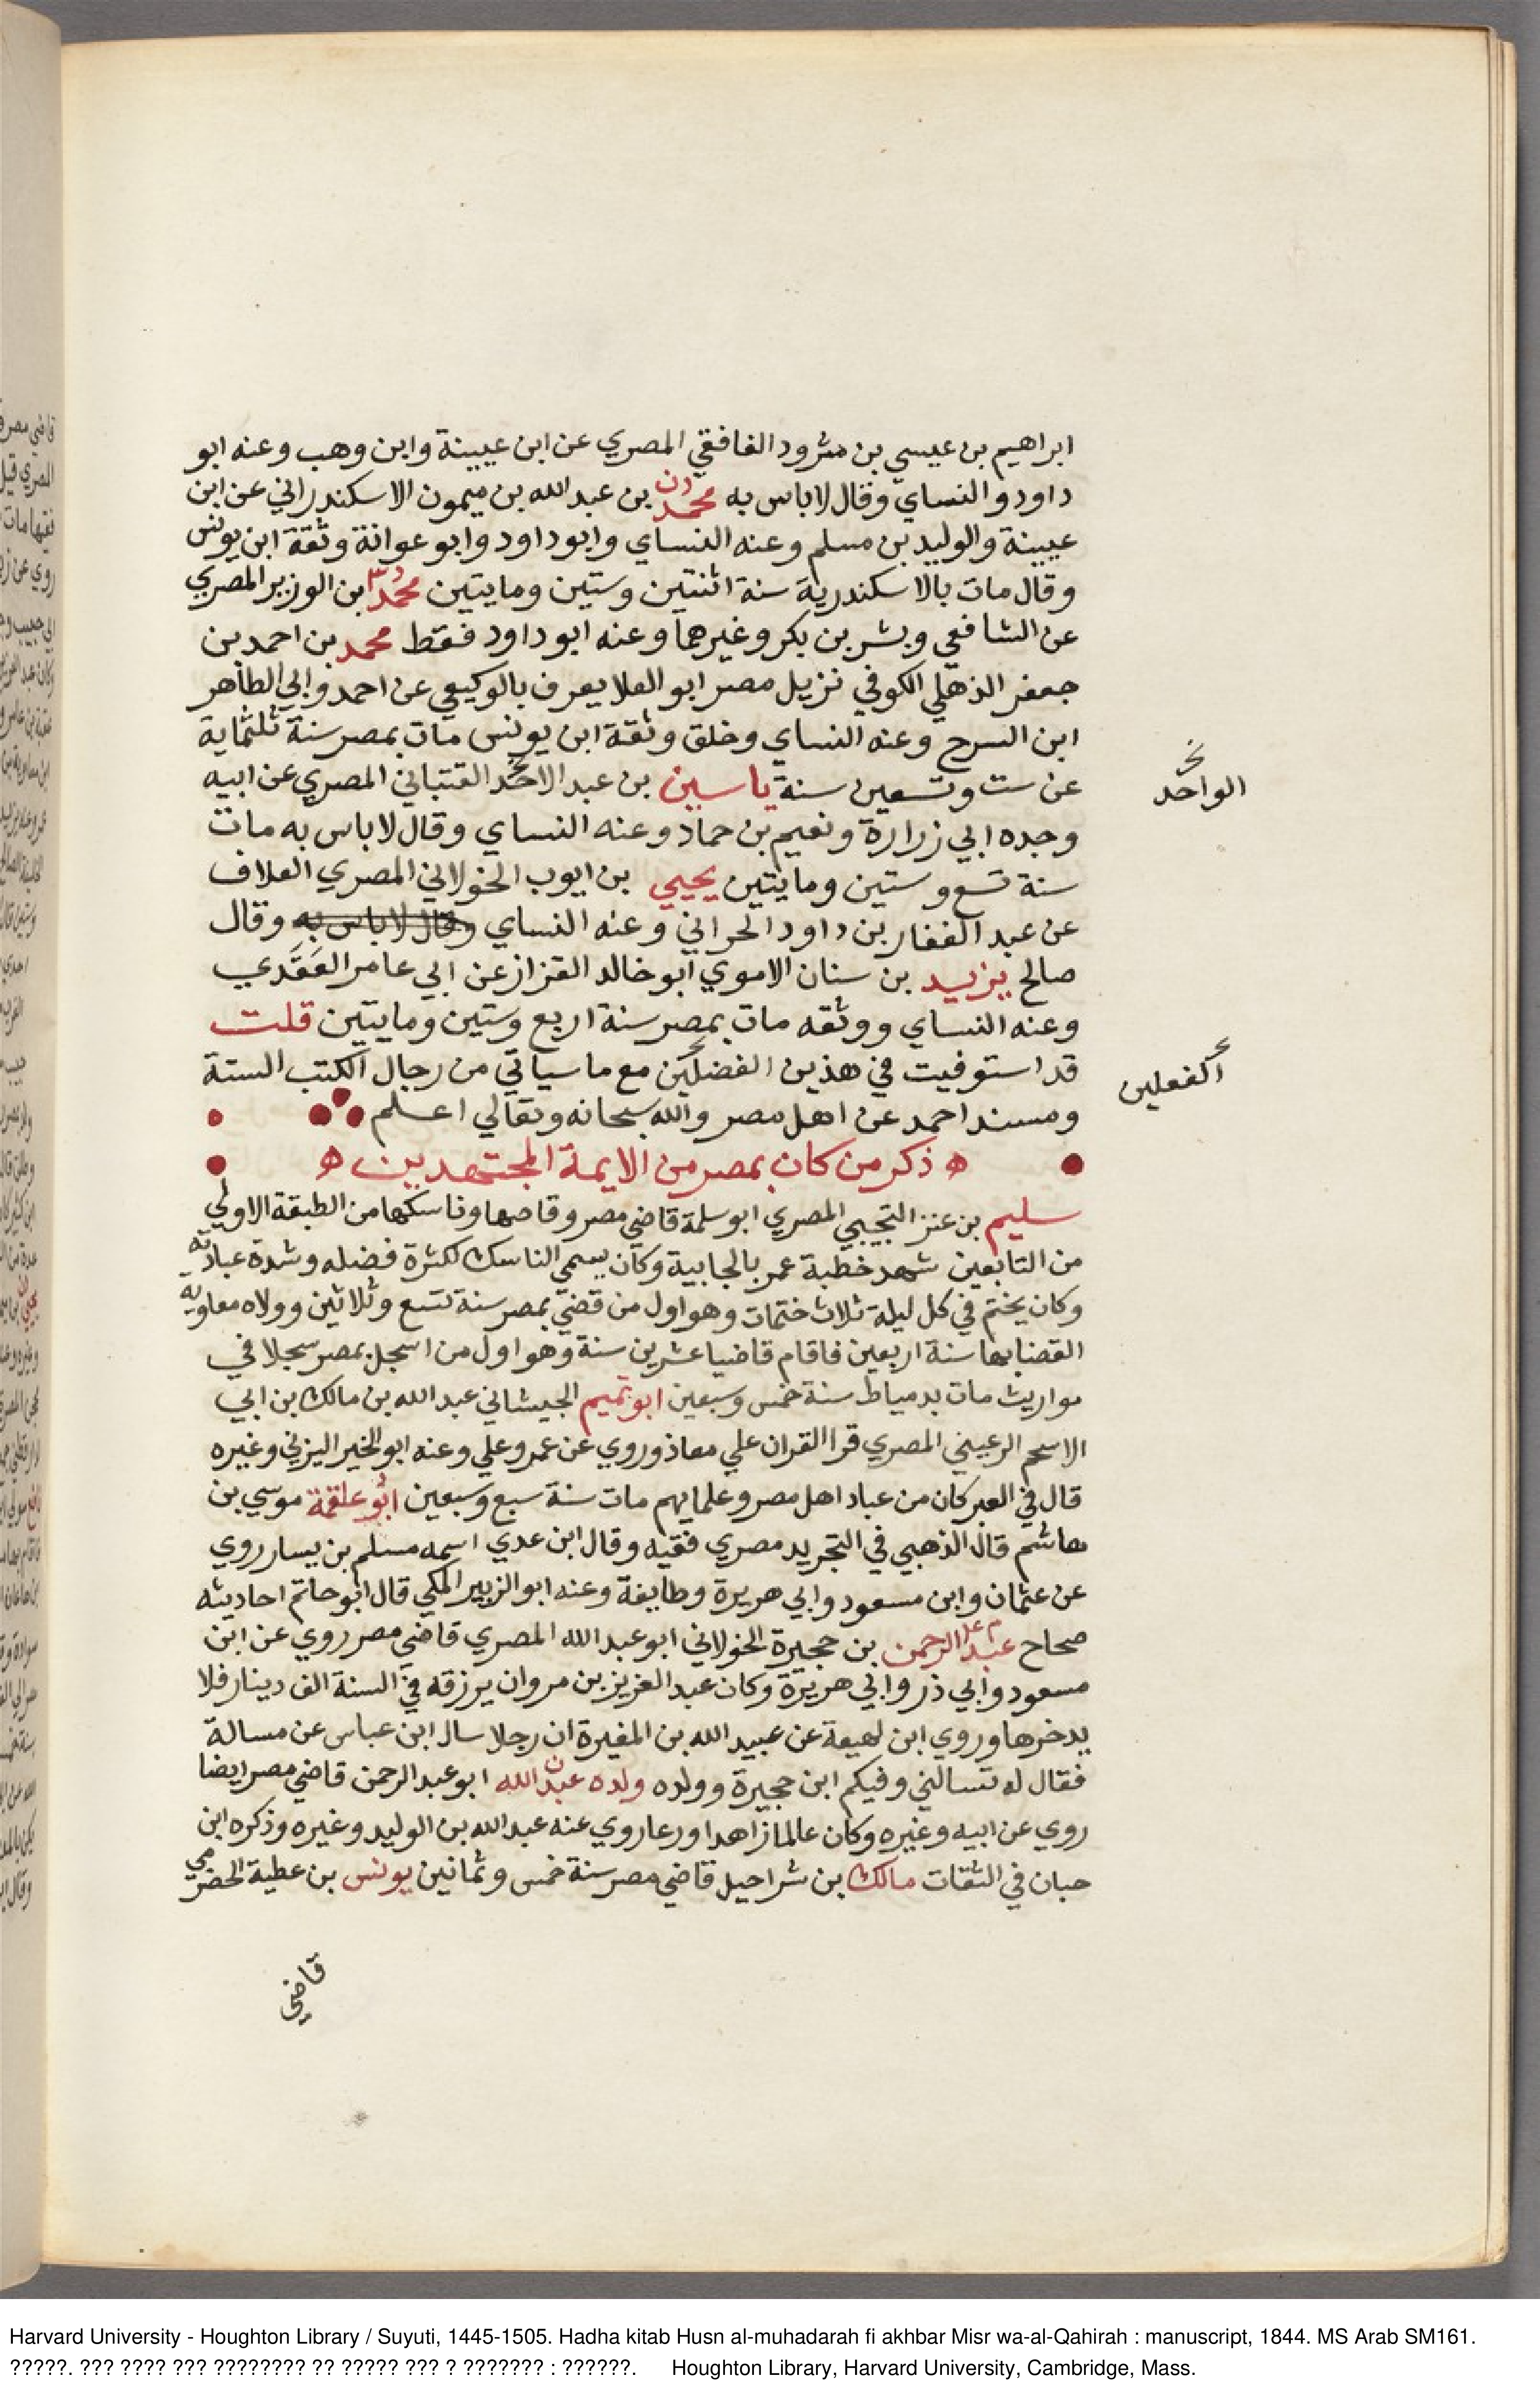 ابراهيم بن عيسي بن مثرود الغافقي المصري عن ابن عيينة وابن وهب وعنه ابو
داود والنساي وقال لاباس به محمد بن عبدالله بن ميمون الاسكندراني عن ابن
عيينة والوليد بن مسلم وعنه النساي وابو داود وابو عوانة وثقة ابن يونس
وقال مات بالاسكندرية سنة اثنتين وستين ومايتين محمد ابن الوزير المصري
عن الشافعي وبشر بن بكر وغيرهما وعنه ابو داود فقط محمد بن احمد بن
جعفر الذهلي الكوفي نزيل مصر ابو العلا يعرف بالوكيعي عن احمد وابي الطاهر
ابن السرح وعنه النساي وخلق وثقة ابن يونس مات بمصر سنة ثلثماية
عن ست وتسعين سنة ياسين بن عبد الاحد القتباني المصري عن ابيه
الواحد
وجده ابي زرارة ونعيم بن حماد وعنه النساي وقال لاباس به مات
سنة تسع وستين ومايتين يحيي بن ايوب الخولاني المصري العلاف
عن عبد الغفار بن داود الحراني وعنه النساي وقال لاباس به وقال
صالح يزيد بن سنان الاموي ابو خالد القزاز عن ابي عامر العقدي
وعنه النساي ووثقه مات بمصر سنة اربع وستين ومايتين قلت
قد استوفيت في هذين الفضلين مع ما سياتي من رجال الكتب الستة
ومسند احمد عن اهل مصر والله سبحانه وتعالي اعلم
ذكر من كان بمصر من الايمة المجتهدين
سليم بن عنز التجيبي المصري ابو سلمة قاضي مصر وقاصها وناسكها من الطبقة الاولي
من التابعين شهد خطبة عمر بالجابية وكان يسمي الناسك لكثرة فضله وشدة عبادته
وكان يختم في كل ليلة ثلاث ختمات وهو اول من قضي بمصر سنة تسع وثلاثين وولاه معاويه
القضا بها سنة اربعين فاقام قاضيا عشرين سنة وهو اول من اسجل بمصر سجلا في
مواريث مات بدمياط سنة خمس وسبعين ابو تميم الجيشاني عبد الله بن مالك بن ابي
الاسحم الرعيني المصري قرا القران علي معاذ وروي عن عمر وعلي وعنه ابو الخير اليزني وغيره
قال في العبر كان من عباد اهل مصر وعلمايهم مات سنة سبع وسبعين ابو علقمة موسي بن
هاشم قال الذهبي في التجريد مصري فقيه وقال ابن عدي اسمه مسلم بن يسار روي
عن عثمان وابن مسعود وابي هريرة وطايفة وعنه ابو الزبير المكي قال ابو حاتم احاديثه
صحاح عبد الرحمن بن حجيرة الخولاني ابو عبد الله المصري قاضي مصر روي عن ابن
مسعود وابي ذر وابي هريرة وكان عبد العزيز بن مروان يرزقه في السنة الف دينار فلا
يدخرها وروي ابن لهيعة عن عبيد الله بن المغيرة ان رجلا سال ابن عباس عن مسالة
فقال له تسالني وفيكم ابن حجيرة وولده ولده عبد الله ابو عبد الرحمن قاضي مصر ايضا
روي عن ابيه وغيره وكان عالما زاهدا ورعا روي عنه عبد الله بن الوليد وغيره وذكره ابن
حبان في الثقات مالك بن شراحيل قاضي مصر سنة خمس وثمانين يونس بن عطية الحضرمي
قاضي
Harvard University - Houghton Library / Suyuti, 1445-1505. Hadha kitab Husn al-muhadarah fi akhbar Misr wa-al-Qahirah : manuscript, 1844. MS Arab SM161.
?????. ??? ???? ??? ???????? ?? ????? ??? ? ??????? : ??????. Houghton Library, Harvard University, Cambridge, Mass.